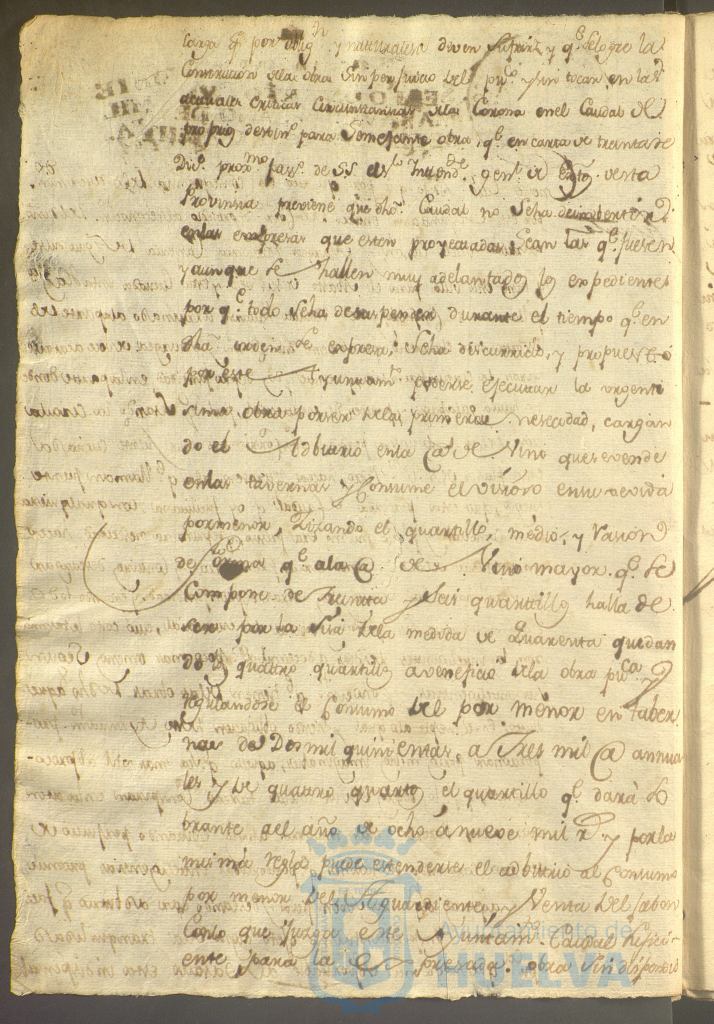 carga q.e por y naturaleza deven sufrirlo y q.e se logre la
Construcion de la obra sin perjuicio del pu.co y sin tocar en las
actuales criticas circunstancias de la Corona en el Caudal de
propios destin.o para semejante obra, q.e en carta de treinta de
Dic.e prox.mo pas.do de SS el S.r Intend.te gen.l de de esta
Provinsia previene que dho. Caudal no se ha de imbertir
en las empresas que esten proyectadas, sean las q.e fuesen
y aunque se hallen muy adelantados los expedientes
por q.e todo se ha de suspender, durante el tiempo q.e en
dha. orden se expresa, se ha discurrido, y propuesto
por este Ayuntam.to poderse ejecutar la urgenti
sima obra por ser de las primeras nesecidad, cargan
do el Adbitrio en la @ de Vino que se vende
en las tavernas y Consume el vesino en su devida
por menor, sizando el quartillo, medio, y racion
de forma q.e a la @ de Vino mayor q.e se
Compone de Treinta y Seis quartillos halla de
ser por la sisa de la medida de Quarenta quedan
do los quatro quartillos a veneficio de la obra pu.ca y
regulandose el Consumo del por menor en taber
nas de Dos mil quinientas, a Tres mil @ annua
les y de quatro quartos el quartillo q.e dará so
brante al año de ocho a nueve mil r.s y por la
misma regla puede estenderse el adbitrio al Consumo
por menor del Aguardiente y Venta del Jabon
Con lo que Juzga este Ayuntam.to Caudal sufici
ente para la Expresada obra sin disponer
Ayuntamiento de
HUELVA